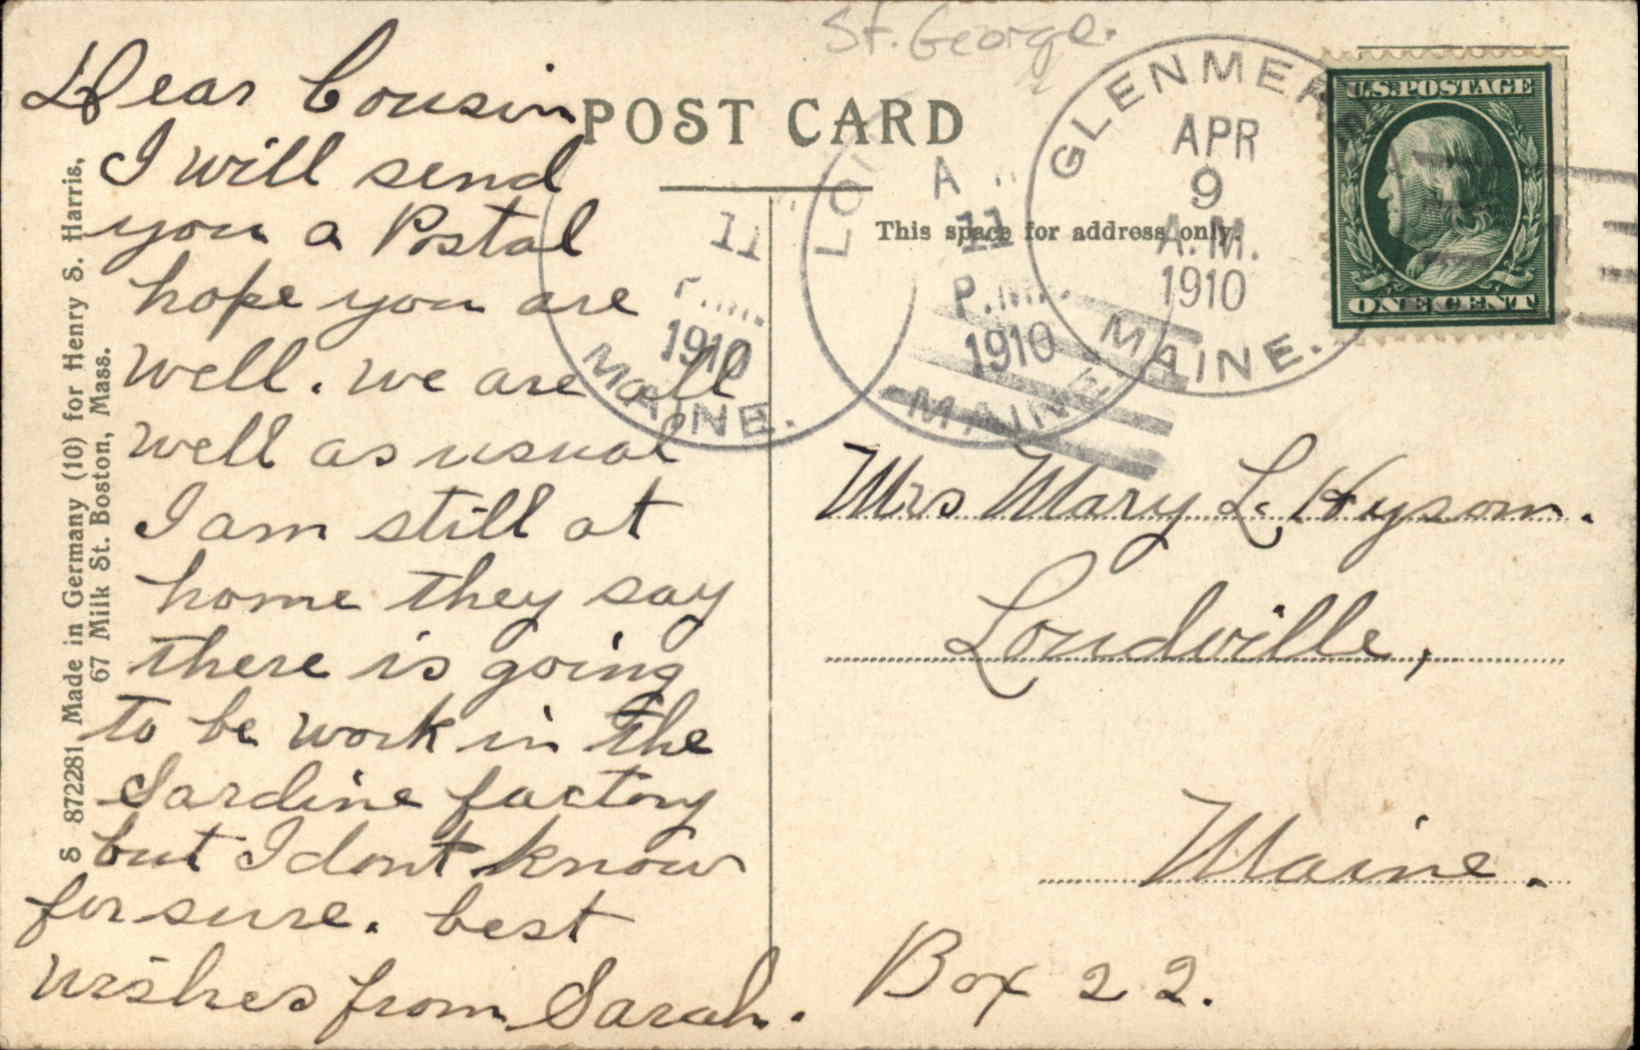 St. George.
POST CARD
This space for address only.
GLENMERE
APR
9
A.M.
1910
MAINE.
U.S. POSTAGE
ONE CENT
11
1910
MAINE.
A
11
P.M.
1910
MAINE
Dear Cousin
I will send
you a Postal
hope you are
well. we are all
well as usual
I am still at
home they say
there is going
to be work in the
Sardine factory
but I dont know
for sure. best
wishes from Sarah.
Mrs Mary L. Hysom.
Loudville,
Maine.
Box 22.
S 872281 Made in Germany (10) for Henry S. Harris,
67 Milk St. Boston, Mass.